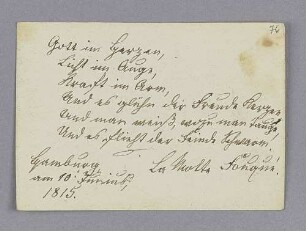 76
Gott im Herzen,
Licht im Auge,
Kraft im Arm,
Und es glühn der Freude Kerzen
Und man weiß, wozu man tauge,
Und es flieht der Feinde Schwarm.
Hamburg
am 10. Junius,
1815.
La Motte Fouqué.